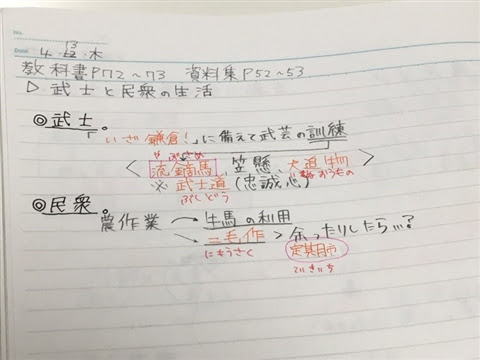 No.
Date 4・13・木
教科書P72~73 資料集P52~53
▷ 武士と民衆の生活
◎武士。
「いざ鎌倉!」に備えて武芸の訓練
やぶさめ
<流鏑馬, 笠懸, 犬追物>
おうもの
※武士道(忠誠心)
ぶしどう
◎民衆。
農作業 → 牛馬の利用
→ 二毛作 > 余ったりしたら…?
にもうさく 定期市
ていきいち